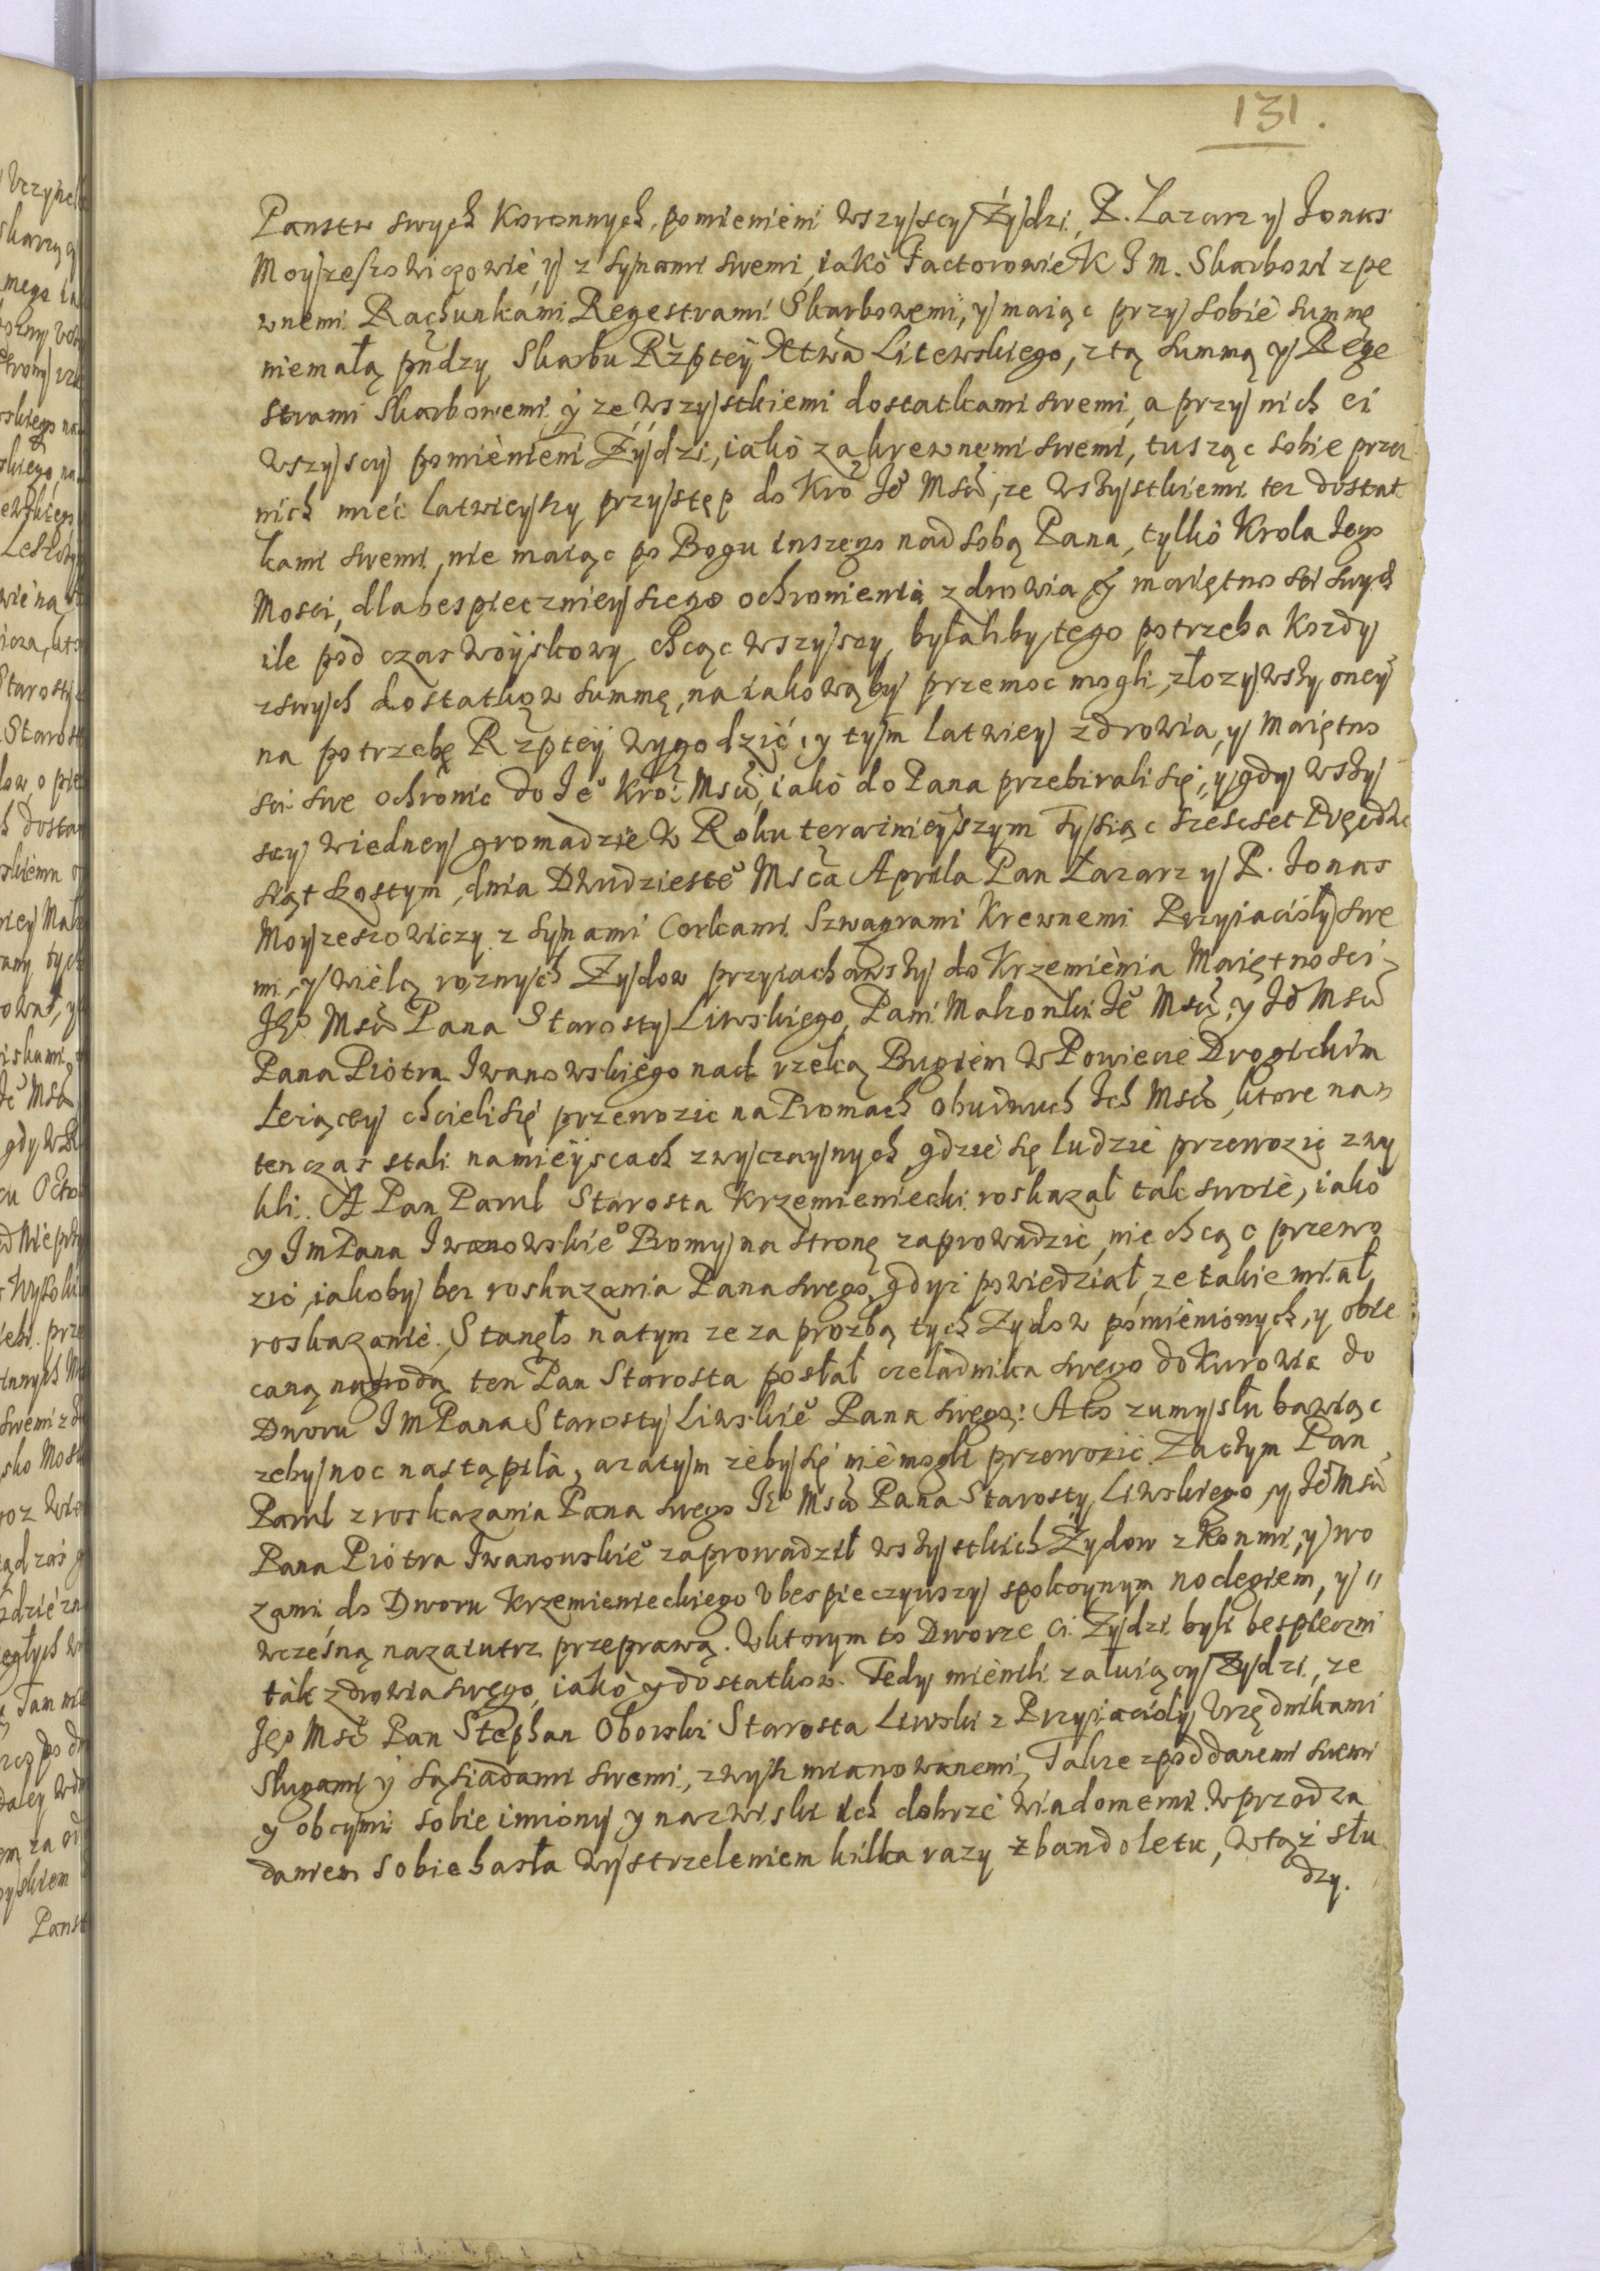 131.
Panstw swych Koronnych, pomienieni wszyscy Żydzi, P. Lazarz y Jonas
Moyzeszowiczowie, y z synami swemi, iako Factorowie K J M. Skarbowi z pe
wnemi Rachunkami Regestrami Skarbowemi, y maiąc przy sobie summę
niemałą pndzy Skarbu Rzptey Xtwa Litewskiego, z tą summą y Rege
strami Skarbowemi, y ze wszystkiemi dostatkami swemi, a przy nich ci
wszyscy pomienieni Żydzi, iako za krewnemi swemi, tusząc sobie przez
nich mieć latwieyszy przystęp do Kro Je Msci, ze wszystkiemi tez dostat
kami swemi, nie maiąc po Bogu inszego nad sobą Pana, tylko Krola Jego
Mosci, dla bespiecznieyszego ochronienia zdrowia y maiętno sci swych
ile pod czas woyskowy, chcąc wszyscy, byłaliby tego potrzeba Kozdy
z swych dostatkow summę, na iakowąby przemoc mogli, złozywszy oney
na potrzebę Rzptey wygodzić, y tym latwiey zdrowia, y maiętno
sci swe ochronic do Je Kro: Msci, iako do Pana przebirali się, y gdy wszy
scy wiedney gromadzie w Roku teraznieyszym Tysiąc szescset Pięcdzie
siąt szostym, dnia Dwudzieste Msca Aprila Pan Łazarz y P. Jonas
Moyzeszowiczy z synami Corkami Szwagrami Krewnemi Przyiacioły swe
mi, y wielą roznych Żydow przyiachawszy do Krzemienia Maiętnosci
Jeo Msci Pana Starosty Liwskiego, Pani Malzonki Je Msci, y Jo Msci
Pana Piotra Iwanowskiego nad rzeką Bugiem w Powiecie Drogickim
Lezącey chcieli się przewozic na Promach obudwuch Ich Msciow, ktore na
ten czas stali na mieyscach zwyczaynych, gdzie się ludzie przewozic zwy
kli. A Pan Pawel Starosta Krzemieniecki roskazał tak swoie, iako
y Jm Pana Iwanowskie Promy na stronę zaprowadzic, nie chcąc przewo
zic, iakoby bez roskazania Pana swego, gdyz powiedział, ze takie miał
roskazanie. Stanęło natym ze za prozbą tych Żydow pomienionych, y obie
caną nagrodą ten Pan Starosta posłał czeladnika swego do Kurowic do
Dworu Jm Pana Starosty Liwskie Pana swego: A to zumysłu bawiąc
zeby noc nastąpila, a zatym zeby się nie mogli przewozic. Zaczym Pan
Pawel z roskazania Pana swego Jeo Msci Pana Starosty Liwskiego, y Jo Msci
Pana Piotra Iwanowskie zaprowadził wszystkich Żydow z Konmi, y wo
zami do Dworu Krzemienieckiego Vbespieczywszy spokoynym noclegiem, y
wczesną nazaiutrz przeprawą. W ktorym to Dworze Ci Żydzi byli bespieczni
tak zdrowia swego, iako y dostatkow. Tedy mienili załuiący Żydzi, ze
Jeo Msc Pan Stephan Oborski Starosta Liwski z Przyiacioly, Vrzędnikami
Sługami y Sąsiadami swemi, zwysz mianowanemi, Takze z poddanemi swemi
y obcymi sobie imiony y nazwiski ich dobrze wiadomemi. wprzod za
daniem sobie hasła wystrzeleniem kilka razy z bandoletu, wtąż słu
dzy.